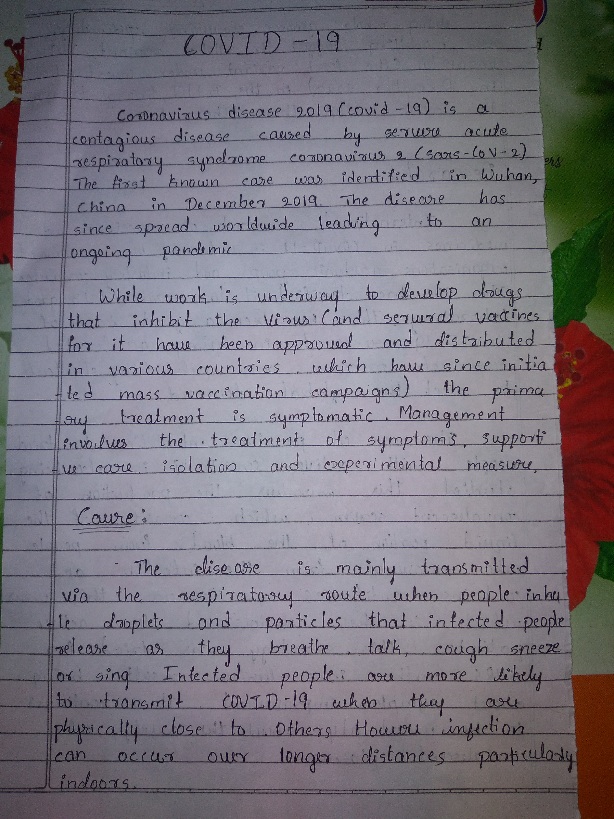 COVID-19
Coronavirus disease 2019 (covid-19) is a
contagious disease caused by servure acute
respiratory syndrome coronavirus 2 (sars-CoV-2)
The first known case was identified in Wuhan,
China in December 2019. The disease has
since spread worldwide leading to an
ongoing pandemic
While work is underway to develop drugs
that inhibit the virus (and serural vaccines
for it have been approved and distributed
in various countries, which have since initia
ted mass vaccination campaigns) the prima
ry treatment is symptomatic Management
involves the treatment of symptoms, supporti
ve care isolation and experimental measure,
Cause:
The disease is mainly transmitted
via the respiratory route when people inha
le droplets and particles that infected people
release as they breathe, talk, cough sneeze
or sing Infected people are more likely
to transmit COVID-19 when they are
physically close to others Howeve infection
can occur over longer distances particulary
indoors.